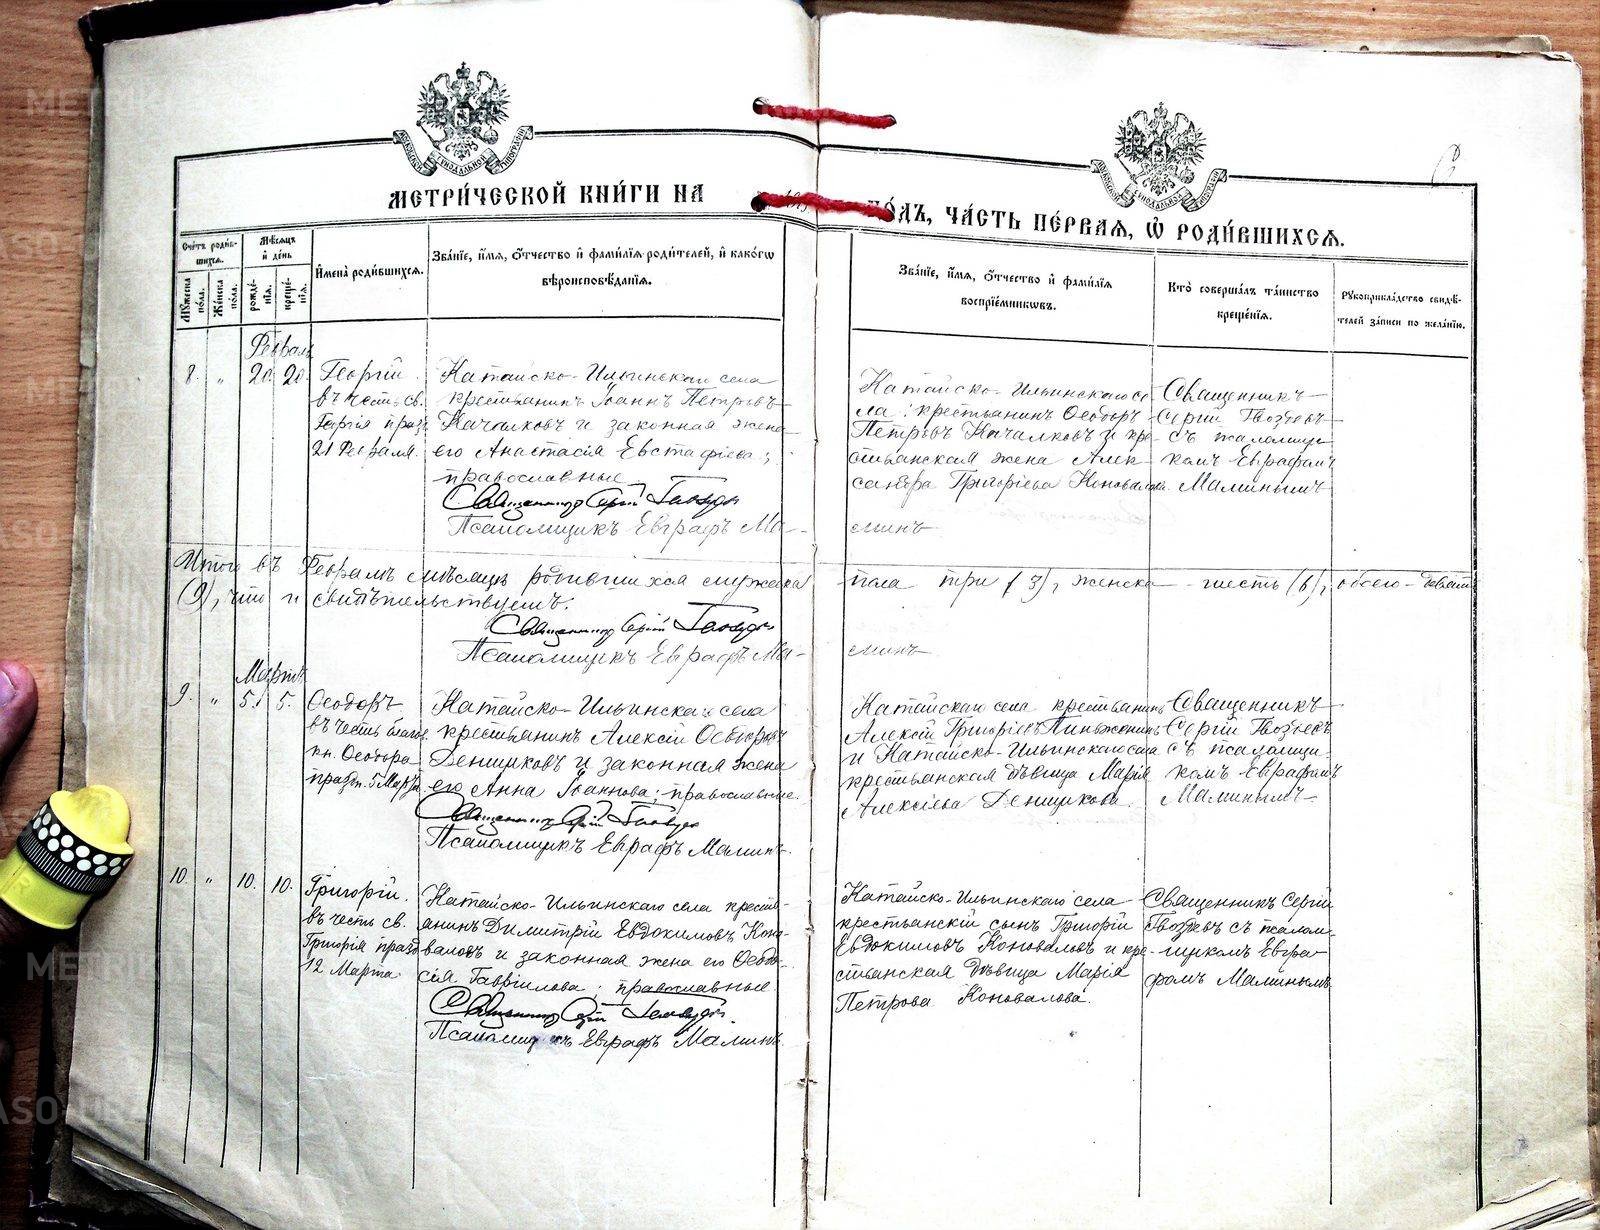 МЕТРИ́ЧЕСКОЙ КНИ́ГИ НА
ГО́ДЪ, ЧА́СТЬ ПЕ́РВАЯ, Ѽ РОДИ́ВШИХСЯ.
Сче́тъ роди́вшихся.
Му́жеска по́ла.
Же́нска по́ла.
Мѣ́сяцъ и҆ де́нь
рожде́нїя.
креще́нїя.
И҆мена̀ роди́вшихся.
Зва́нїе, и҆́мя, ѻ҆́тчество и҆ фами́лїя роди́телей, и҆ како́гѡ
вѣроисповѣ́данїя.
Зва́нїе, и҆́мя, ѻ҆́тчество и҆ фами́лїя
воспрїе́мникѡвъ.
Кто̀ соверша́лъ та́инство
креще́нїя.
Рꙋкоприкла́дство свидѣ́-
телей за́писи по жела́нїю.
Февраль
8. " 20. 20.
Георгій
въ честь св.
Георгія празд.
21 Февраля.
Катайско-Ильинскаго села
крестьянинъ Іоаннъ Петровъ
Качалковъ и законная жена
его Анастасія Евстафіева;
православные
Священникъ Сергій Гвоздевъ
Псаломщикъ Евграфъ Ма-
минъ
Катайско-Ильинскаго се
ла: крестьянинъ Ѳеодоръ
Петровъ Качалковъ и кре-
стьянская жена Алек-
сандра Григоріева Коновалова.
Священникъ
Сергій Гвоздевъ
съ псаломщи
комъ Евграфомъ
Маминымъ
Итого въ Февралѣ мѣсяцѣ родившихся мужеска
пола три (3), женска шесть (6), обоего девять
(9), что и свидѣтельствуемъ.
Священникъ Сергій Гвоздевъ
Псаломщикъ Евграфъ Ма-
минъ
Мартъ
9. " 5. 5.
Ѳеодоръ
въ честь благов.
кн. Ѳеодора
праздн. 5 Марта
Катайско-Ильинскаго села
крестьянинъ Алексій Ѳеодоровъ
Денщиковъ и законная жена
его Анна Іоаннова; православные.
Священникъ Сергій Гвоздевъ
Псаломщикъ Евграфъ Маминъ.
Катайскаго села крестьянинъ
Алексій Григоріевъ
и Катайско-Ильинскаго села
крестьянская дѣвица Марія
Алексіева Денщикова.
Священникъ
Сергій Гвоздевъ
съ псаломщи
комъ Евграфомъ
Маминымъ
10. " 10. 10.
Григорій.
въ честь св.
Григорія празд
12 Марта
Катайско-Ильинскаго села кресть-
янинъ Димитрій Евдокимовъ Коно-
валовъ и законная жена его Ѳеодо-
сія Гавріилова; православные.
Священникъ Сергій Гвоздевъ.
Псаломщикъ Евграфъ Маминъ.
Катайско-Ильинскаго села
крестьянскій сынъ Григорій
Евдокимовъ Коноваловъ и кре-
стьянская дѣвица Марія
Петрова Коновалова.
Священникъ Сергій
Гвоздевъ съ псалом-
щикомъ Евгра-
фомъ Маминымъ
METRIK